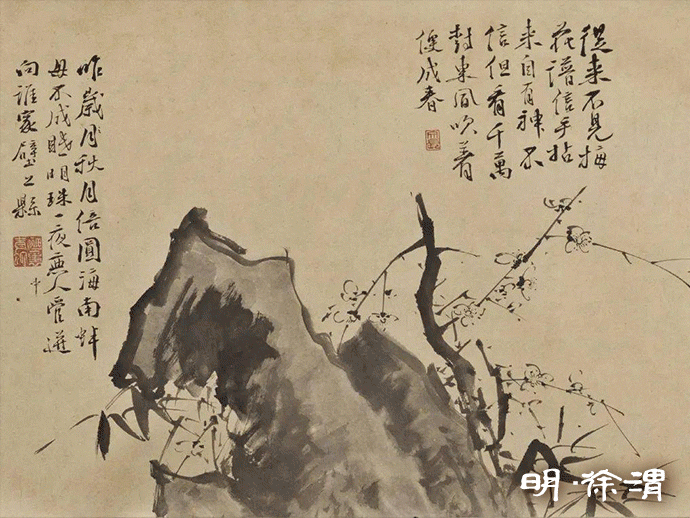 從来不見梅
花譜信手拈
来自有神不
信但看千萬
樹東風吹着
便成春
昨歲月秋月倍圓海南蚌
母不成眠明珠一夜無人管迸
向誰家壁上縣
中
明·徐渭